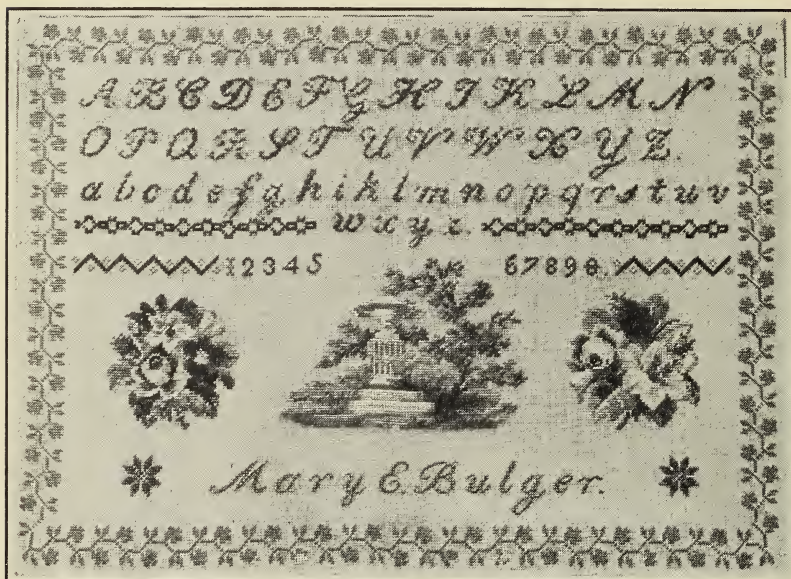 A B C D E F G H I K L M N
O P Q R S T U V W X Y Z.
a b c d e f g h i k l m n o p q r s t u v
w x y z.
1 2 3 4 5 6 7 8 9 0.
Mary E. Bulger.